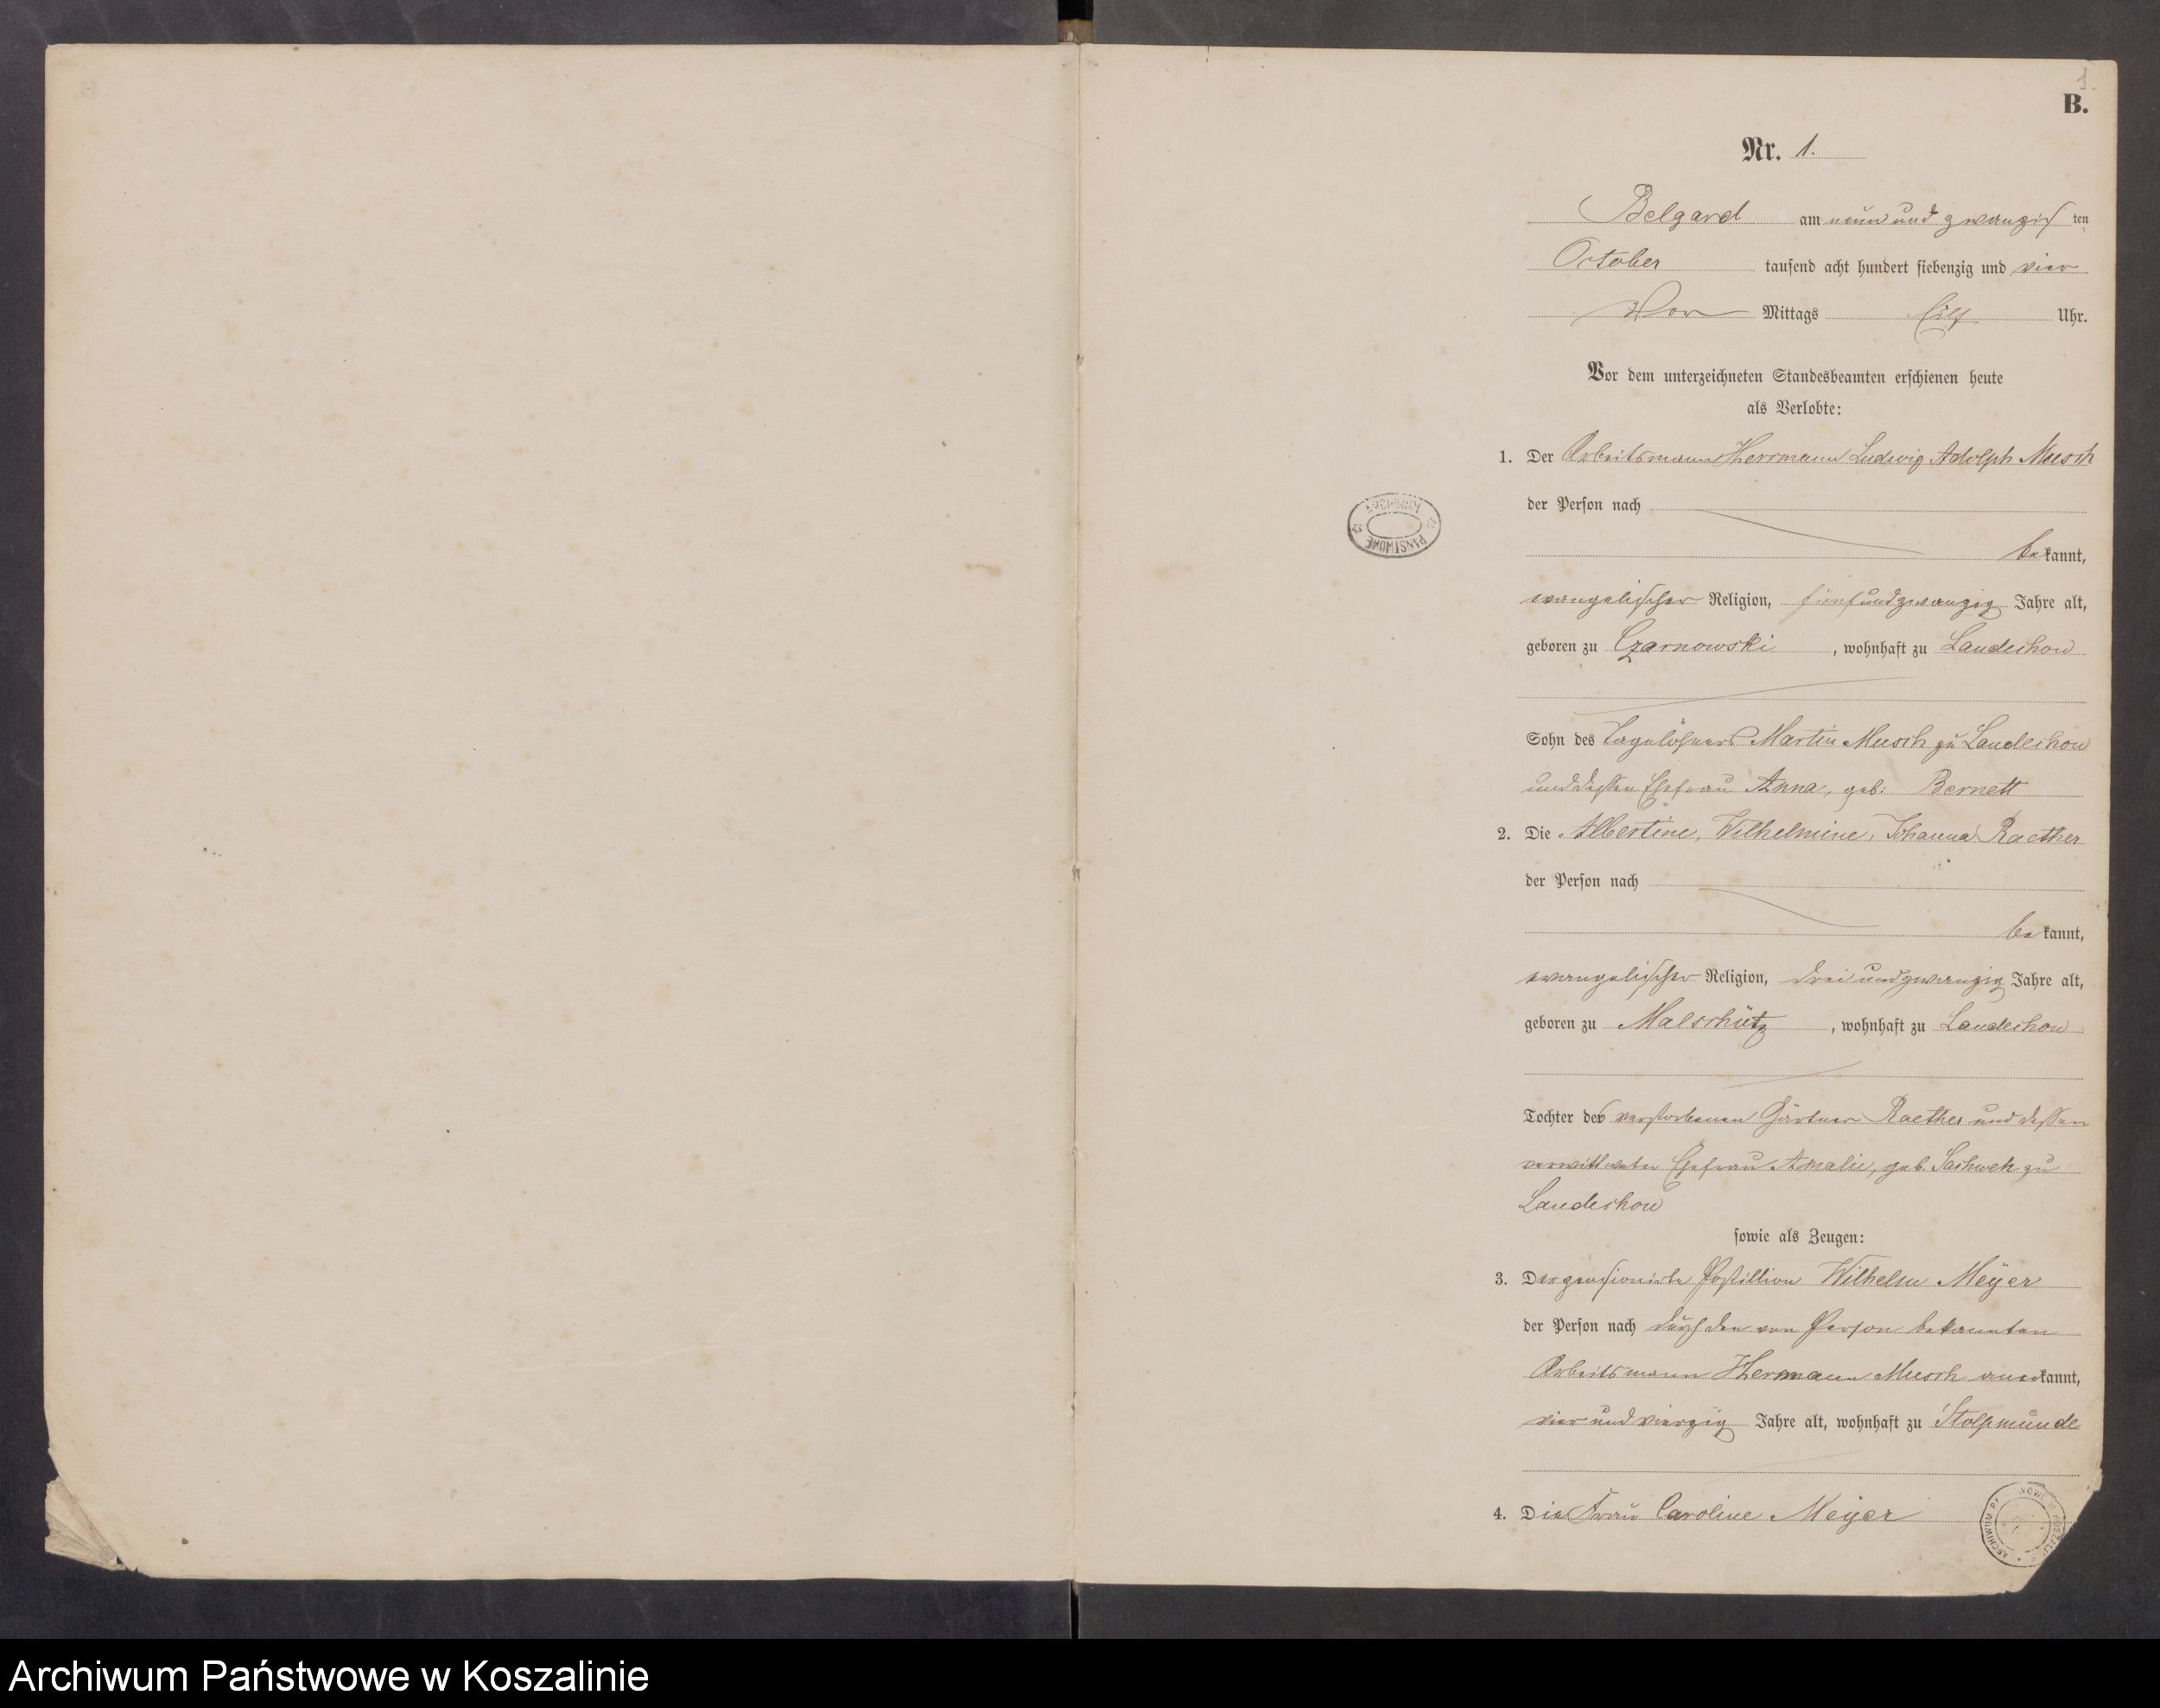 1.
B.
Nr. 1.
Belgard am neun und zwanzig ten
October tausend acht hundert siebenzig und vier
Vor Mittags Eilf Uhr.
Vor dem unterzeichneten Standesbeamten erschienen heute
als Verlobte:
1. Der Arbeitsmann Herrmann Ludwig Adolph Musch
der Person nach
be kannt,
evangelischer Religion, fünfundzwanzig Jahre alt,
geboren zu Czarnowski, wohnhaft zu Landechow
Sohn des Tagelöhners Martin Musch zu Landechow
und dessen Ehefrau Anna, geb: Bernett
2. Die Albertine, Wilhelmine, Johanna Raether
der Person nach
be kannt,
evangelischer Religion, drei und zwanzig Jahre alt,
geboren zu Malschütz, wohnhaft zu Landechow
Tochter des verstorbenen Gärtner Raether und dessen
verwittwete Ehefrau Amalie, geb. zu
Landechow
sowie als Zeugen:
3. Der pensionirte Postillion Wilhelm Meÿer
der Person nach durch den von Person bekannten
Arbeitsmann Hermann Musch anerkannt,
vier und vierzig Jahre alt, wohnhaft zu Stolpmünde
4. Die Frau Caroline Meÿer
PANSTWOWE
ARCHIWUM
Archiwum Państwowe w Koszalinie